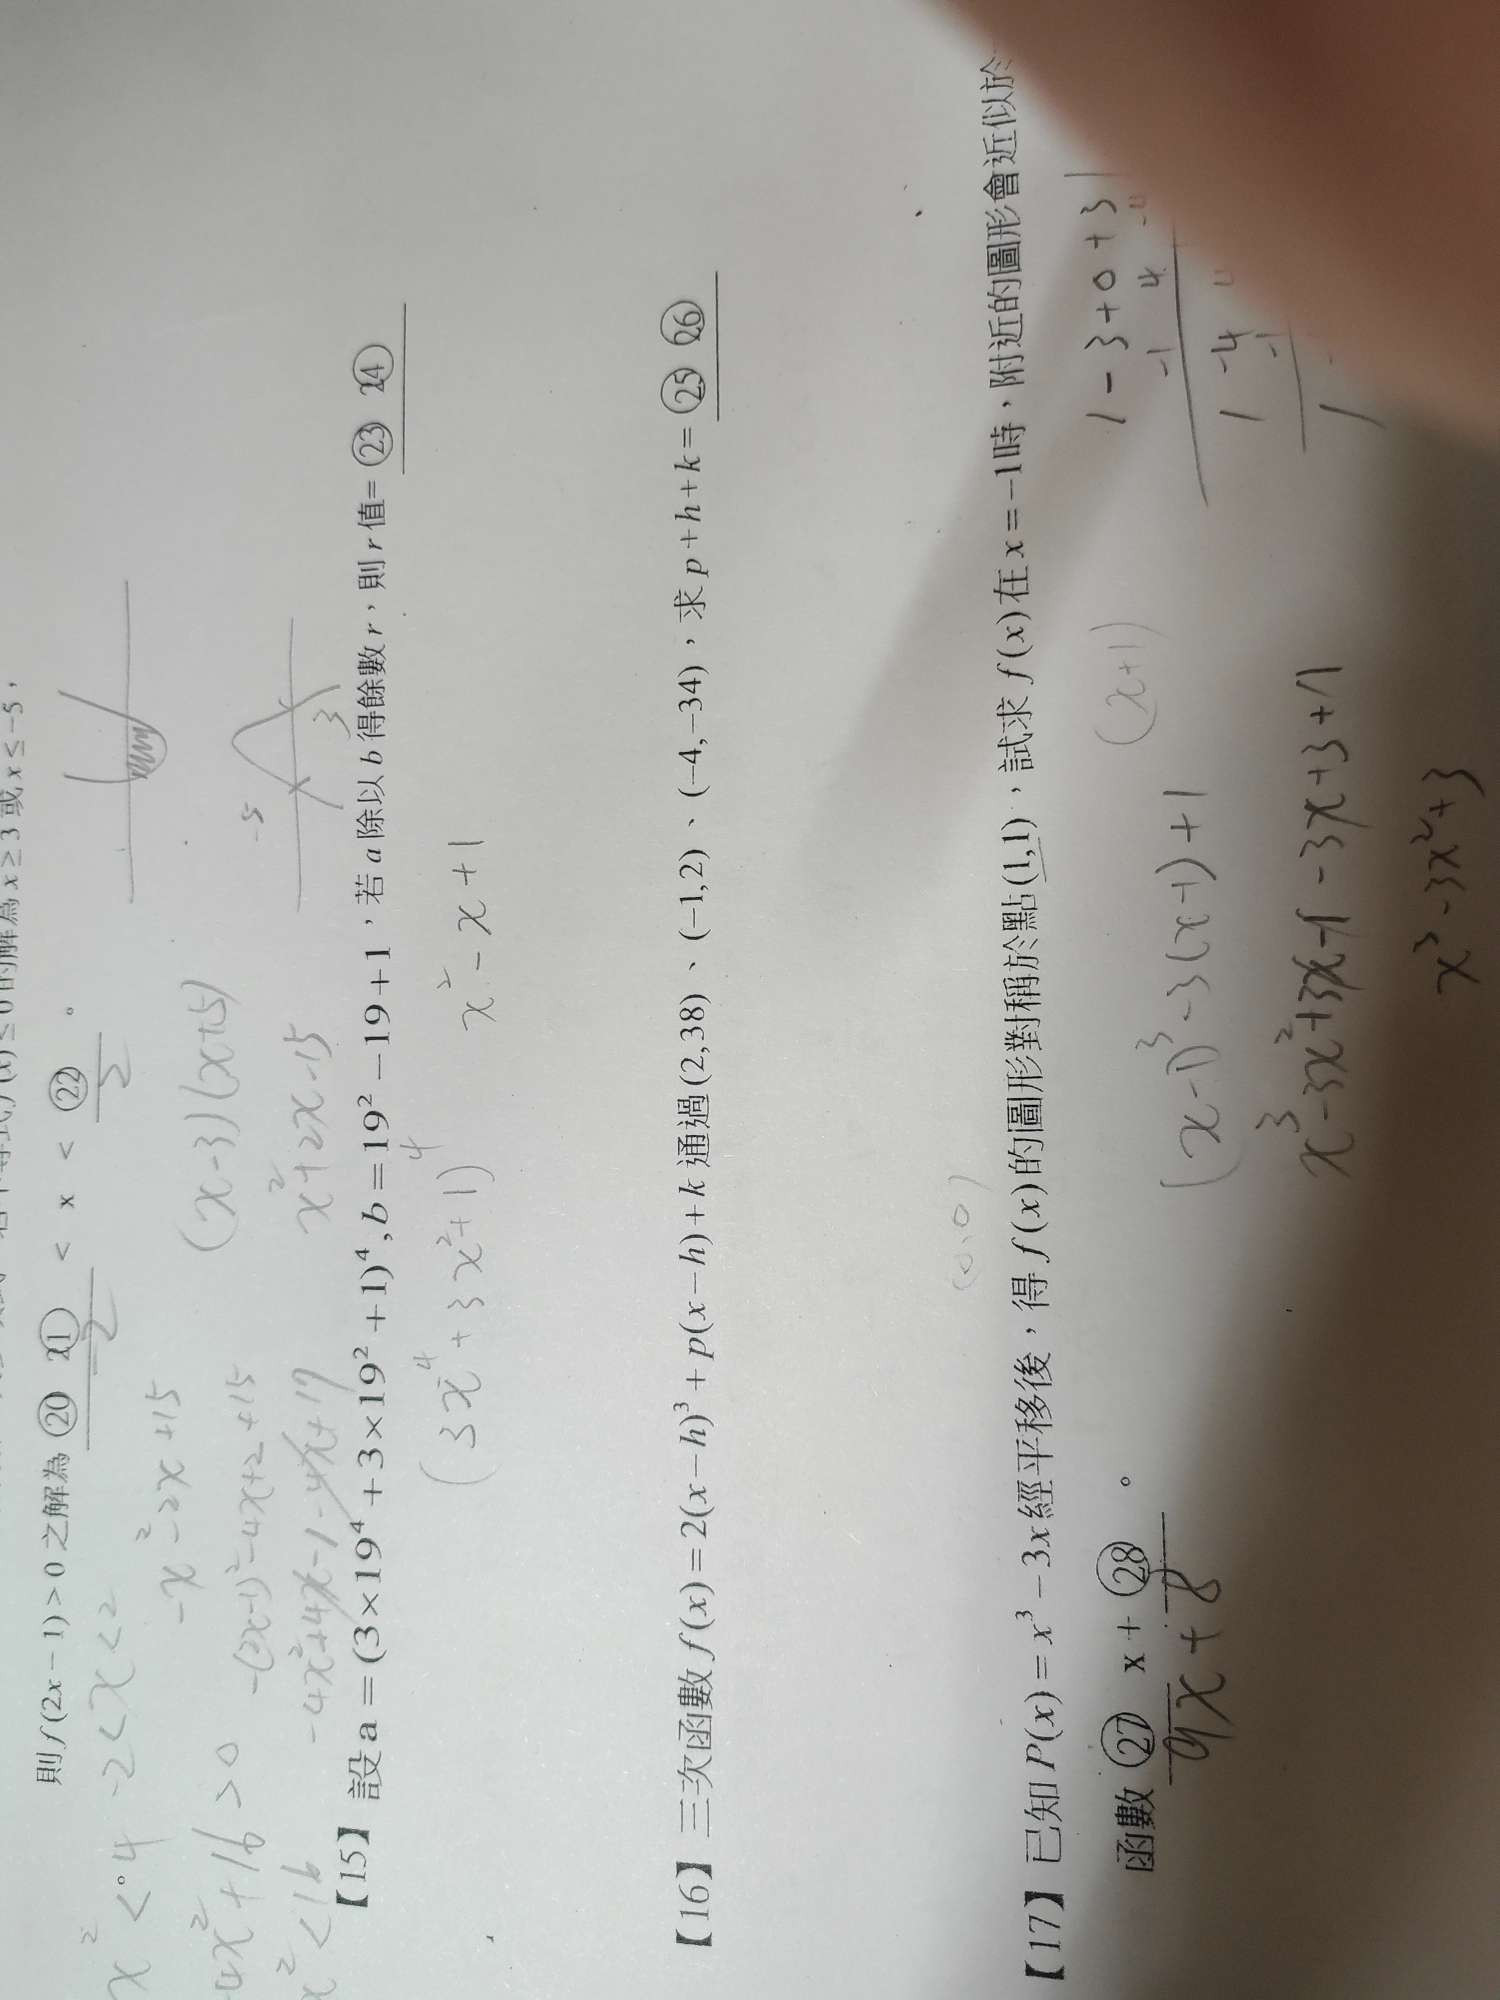 的解為 x ≥ 3 或 x ≤ −5，
則 f(2x−1) > 0 之解為 ⑳ ㉑ < x < ㉒ 。
-2 2
x² < 4 -2 < x < 2
-x² -2x +15
(x-3)(x+5)
-4x² + 16 > 0
-(2x-1)² -4x+2 +15
x² + 2x -15
-5 3
x² < 16
-4x² +4x -1 -4x +17
【15】 設 a = (3×19⁴ + 3×19² +1)⁴ , b = 19² −19 +1，若 a 除以 b 得餘數 r，則 r 值= ㉓ ㉔
(3x⁴ + 3x² +1)⁴
x² - x + 1
【16】 三次函數 f(x) = 2(x−h)³ + p(x−h) + k 通過 (2,38)、(−1,2)、(−4,−34)，求 p+h+k = ㉕ ㉖
(0,0)
【17】 已知 P(x) = x³ −3x 經平移後，得 f(x) 的圖形對稱於點 (1,1)，試求 f(x) 在 x = −1 時，附近的圖形會近似於
函數 ㉗ x + ㉘ 。
9x + 8
(x+1)
(x-1)³ -3(x-1) +1
x³ -3x² +3x -1 -3x +3 +1
x³ -3x² +3
1 -3 +0 +3
-1 4
1 -4
-1
1